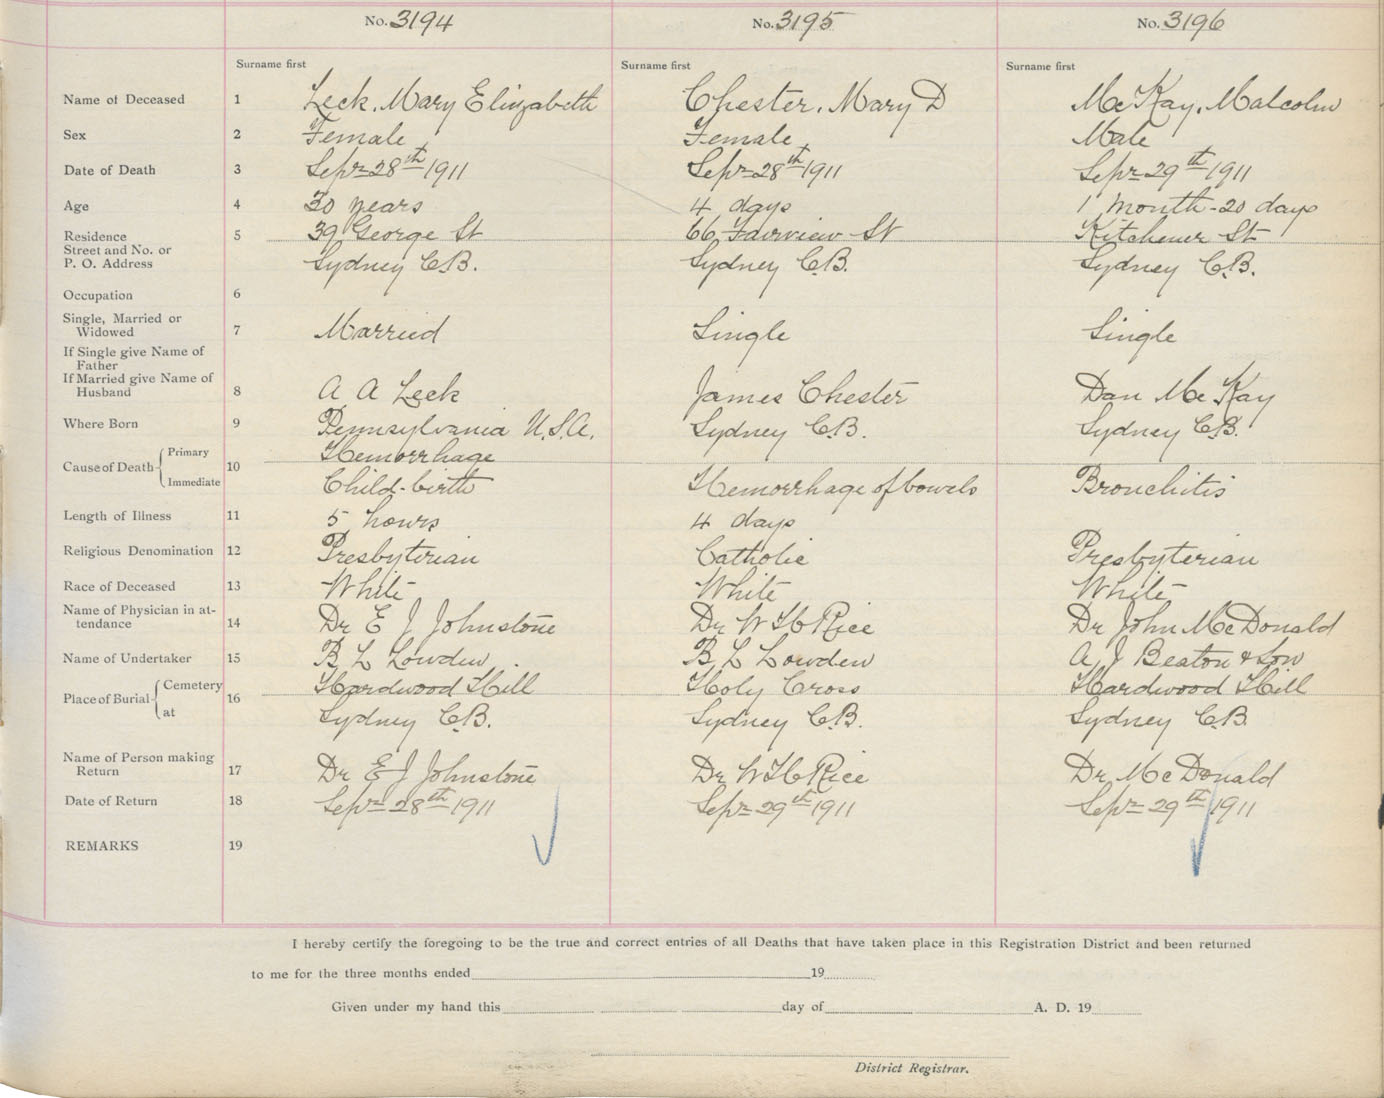 No. 3194 No. 3195 No. 3196
Surname first Surname first Surname first
Name of Deceased 1 Leck, Mary Elizabeth Chester, Mary D McKay, Malcolm
Sex 2 Female Female Male
Date of Death 3 Sepr 28th 1911 Sepr 28th 1911 Sepr 29th 1911
Age 4 30 years 4 days 1 month - 20 days
Residence 5 39 George St 66 Fairview St Kitchener St
Street and No. or
P. O. Address Sydney C.B. Sydney C.B. Sydney C.B.
Occupation 6
Single, Married or
Widowed 7 Married Single Single
If Single give Name of
Father
If Married give Name of
Husband 8 A A Leck James Chester Dan McKay
Where Born 9 Pennsylvania U.S.A. Sydney C.B. Sydney C.B.
Cause of Death 10 Primary Hemorrhage
Immediate Child-birth Hemorrhage of bowels Bronchitis
Length of Illness 11 5 hours 4 days
Religious Denomination 12 Presbyterian Catholic Presbyterian
Race of Deceased 13 White White White
Name of Physician in at-
tendance 14 Dr E J Johnstone Dr W H Rice Dr John McDonald
Name of Undertaker 15 B L Lowden B L Lowden A J Beaton & Son
Place of Burial 16 Cemetery Hardwood Hill Holy Cross Hardwood Hill
at Sydney C.B. Sydney C.B. Sydney C.B
Name of Person making
Return 17 Dr E J Johnstone Dr W H Rice Dr McDonald
Date of Return 18 Sepr 28th 1911 Sepr 29th 1911 Sepr 29th 1911
REMARKS 19
I hereby certify the foregoing to be the true and correct entries of all Deaths that have taken place in this Registration District and been returned
to me for the three months ended 19
Given under my hand this day of A. D. 19
District Registrar.